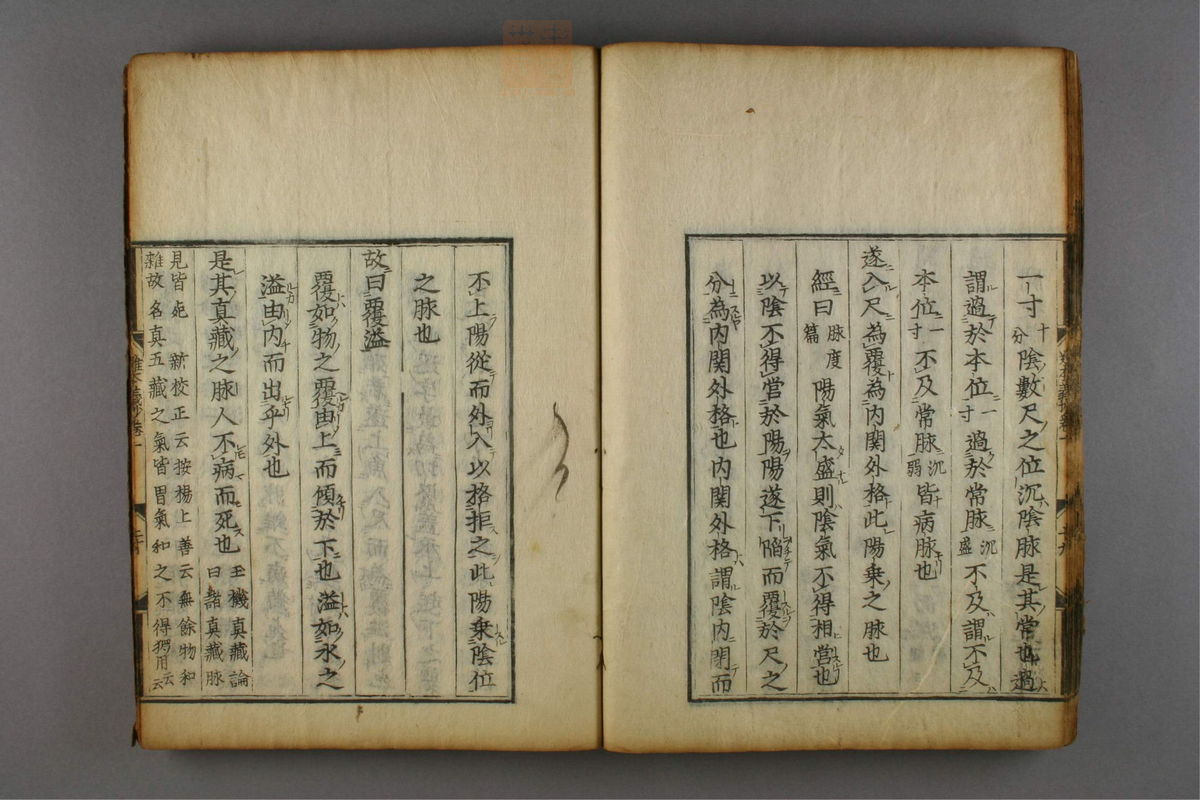 一寸十分陰數尺之位沉陰脉是其常也過
謂過於本位一寸過於常脉沉盛不及謂不及
本位一寸不及常脉沉弱皆病脉也
遂入尺為覆為内関外格此陽乗之脉也
經曰脉度篇陽氣太盛則陰氣不得相営也
以陰不得営於陽陽遂下陷而覆於尺之
分為内関外格也内関外格謂陰内閉而
不上陽從而外入以格拒之此陽乗陰位
之脉也
故曰覆溢
覆如物之覆由上而傾於下也溢如水之
溢由内而出乎外也
是其真藏之脉人不病而死也玉機真藏論曰諸真藏脉
見皆死新校正云按楊上善云無餘物和
雜故名真五藏之氣皆胃氣和之不得獨用云云